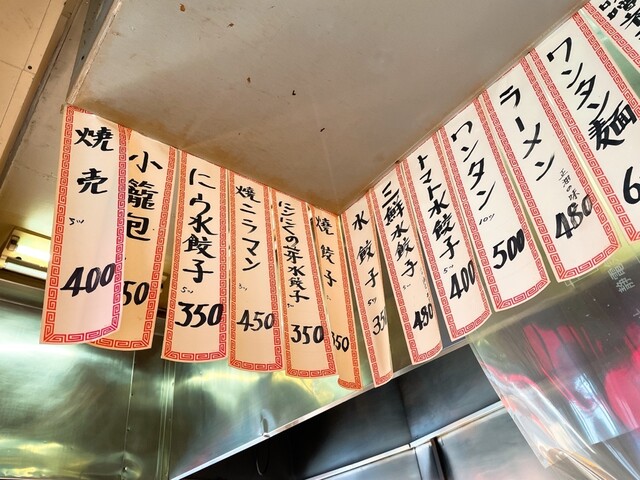 焼売
5ツ
400
小籠包
50
にら水餃子
5ツ
350
焼ニラマン
450
にんにくの芽水餃子
350
焼餃子
350
水餃子
5ツ
35
三鮮水餃子
5ツ
480
トマト水餃子
5ツ
400
ワンタン
10ツ
500
ラーメン
正油味
480
ワンタン麺
6